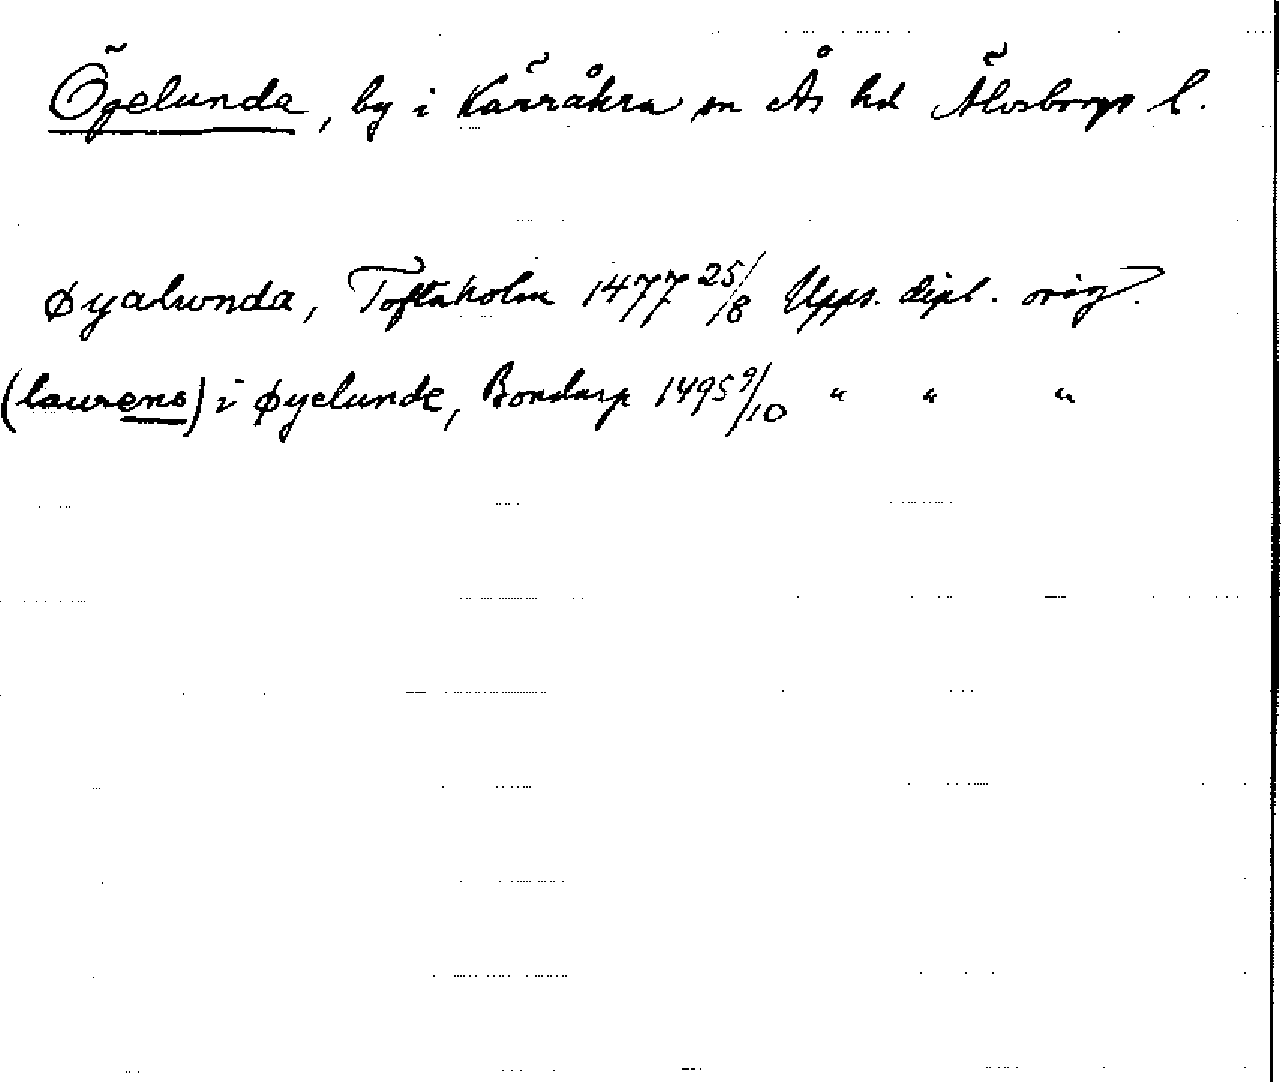 Öjelunda, by i Kärråkra sn Ås hd Älvsborgs l.
øyalunda, Toftaholm 1477 25/8 Upps. dipl. orig.
(laurens) i øyelunde, Bondarp 1495 9/10 " " "